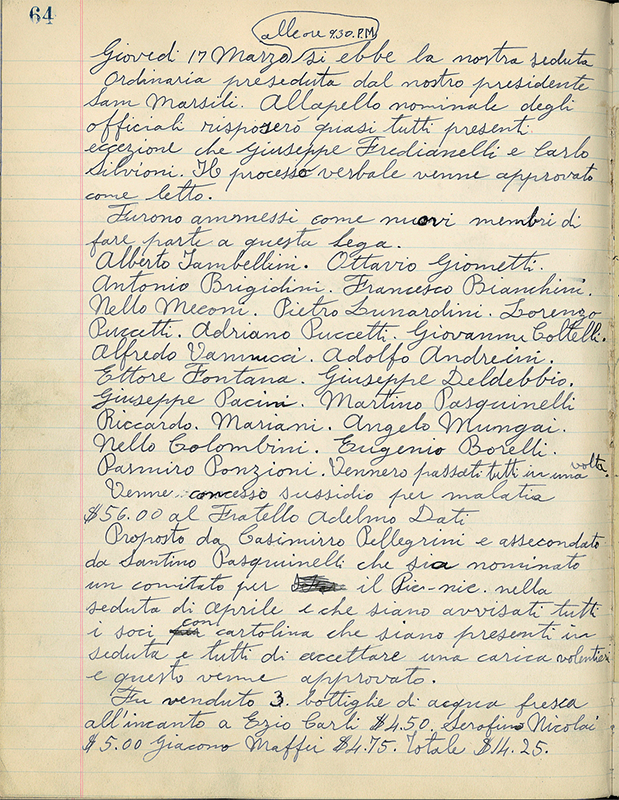 64
alle ore 9.30. P.M
Giovedi 17 Marzo si ebbe la nostra seduta
Ordinaria preseduta dal nostro presidente
Sam Marsili. Allapello nominale degli
officiali risposerò quasi tutti presenti
eccezione che Giuseppe Fredianelli e Carlo
Silvioni. Il processo verbale venne approvato
come letto.
Furono ammessi come nuovi membri di
fare parte a questa lega.
Alberto Tambellini. Ottavio Giometti.
Antonio Brigidini. Francesco Bianchini.
Nello Meconi. Pietro Lunardini. Lorenzo
Puccetti. Adriano Puccetti. Giovanni Coltelli.
Alfredo Vannucci. Adolfo Andreini.
Ettore Fontana. Giuseppe Deldebbio.
Giuseppe Pacini. Martino Pasquinelli
Riccardo. Mariani. Angelo Mungai.
Nello Colombini. Eugenio Borelli.
Pasmiro Ponzioni. Vennero passati tutti in una volta.
Venne concesso sussidio per malatia
$56.00 al Fratello Adelmo Dati
Proposto da Casimirro Pellegrini e assecondato
da Santino Pasquinelli che sia nominato
un comitato per il Pic-nic. nella
seduta di Aprile e che siano avvisati tutti
i soci con cartolina che siano presenti in
seduta e tutti di accettare una carica volentieri
e questo venne approvato.
Fu venduto 3. bottiglie di acqua fresca
all'incanto a Ezio Carli $4.50. Serafino Nicolai
$5.00 Giacomo Maffii $4.75. Totale $14.25.